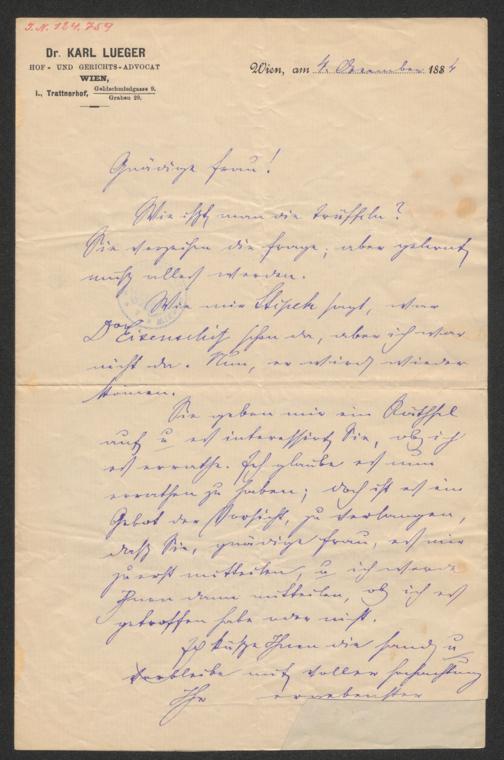 J.N. 124.759
Dr. KARL LUEGER
HOF- UND GERICHTS-ADVOCAT
WIEN,
I., Trattnerhof, Goldschmiedgasse 9.
Graben 29.
Wien, am 4. Dezember 1884
Gnädige Frau!
Wie ißt man die Trüffeln?
Sie verzeihen die Frage; aber gelernt
muß alles werden.
Wie mir Stipek sagt, war
Dor Eisenschitz schon da, aber ich war
nicht da. Nun, er wird wieder
kommen.
Sie geben mir ein Räthsel
auf u es interessirt Sie, ob ich
es errathe. Ich glaube es nun
errathen zu haben; doch ist es ein
Gebot der Vorsicht, zu verlangen,
daß Sie, gnädige Frau, es mir
zuerst mittheilen, u ich werde
Ihnen dann mittheilen, ob ich es
getroffen habe oder nicht.
Ich küsse Ihnen die Hand u
verbleibe mit voller Hochachtung
Ihr ergebenster